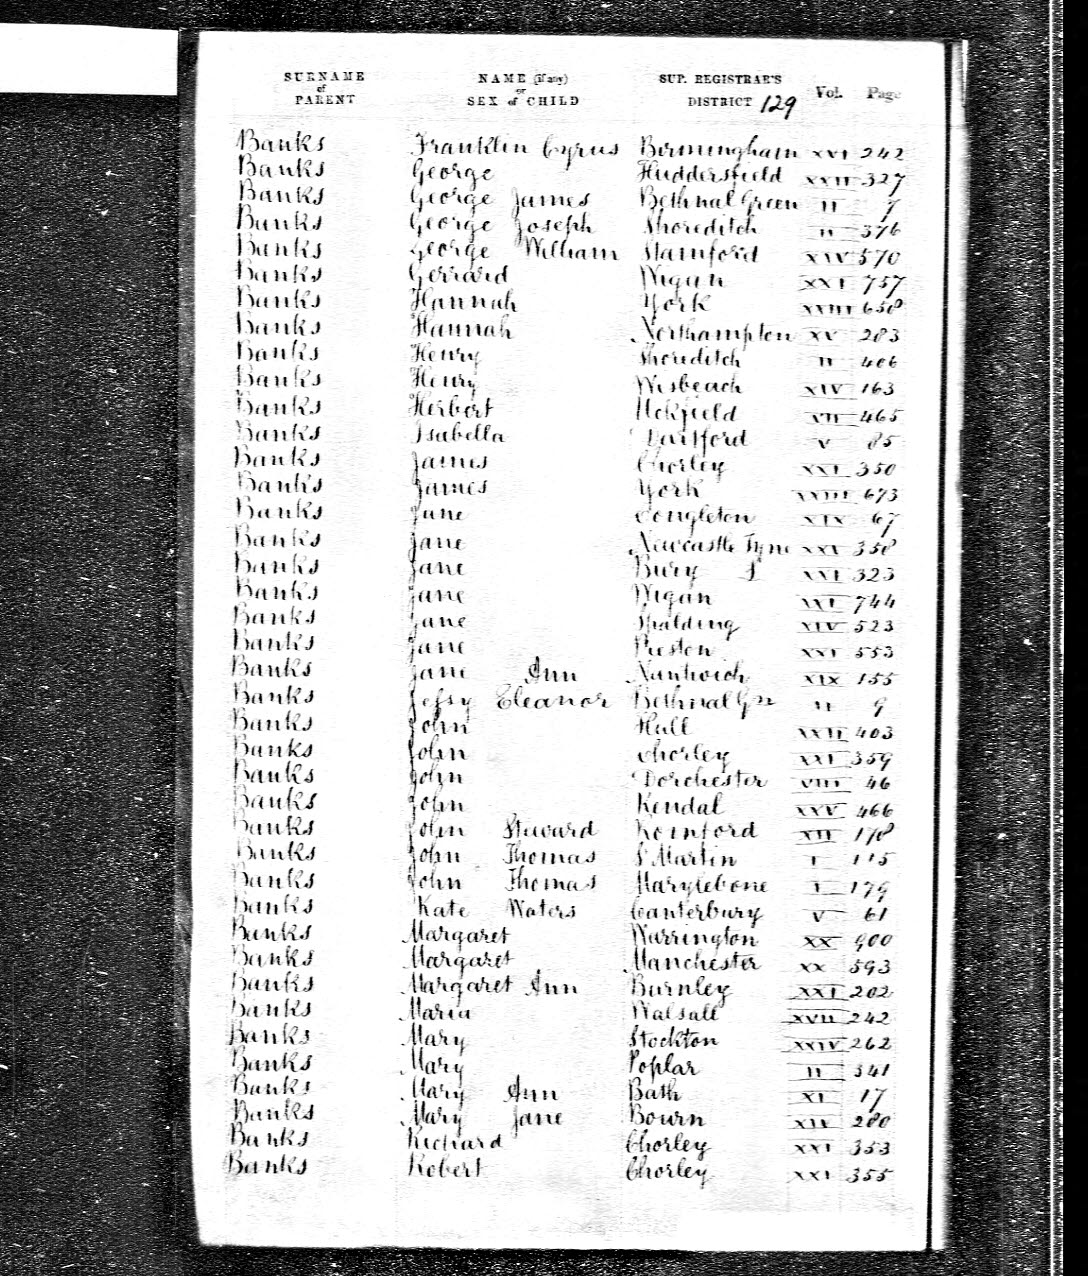 SURNAME of PARENT NAME (if any) or SEX of CHILD SUP. REGISTRAR'S DISTRICT 129 Vol. Page
Banks Franklin Cyrus Birmingham XVI 242
Banks George Huddersfield XXII 327
Banks George James Bethnal Green II 7
Banks George Joseph Shoreditch II 376
Banks George William Stamford XIV 570
Banks Gerrard Wigan XXI 757
Banks Hannah York XXIII 658
Banks Hannah Northampton XV 283
Banks Henry Shoreditch II 406
Banks Henry Wisbeach XIV 163
Banks Herbert Uckfield VII 465
Banks Isabella Dartford V 85
Banks James Chorley XXI 350
Banks James York XXIII 673
Banks Jane Congleton XIX 67
Banks Jane Newcastle Tyne XXV 358
Banks Jane Bury L XXI 323
Banks Jane Wigan XXI 744
Banks Jane Spalding XIV 523
Banks Jane Preston XXI 553
Banks Jane Ann Nantwich XIX 155
Banks Jefsy Eleanor Bethnal Grn II 9
Banks John Hull XXII 403
Banks John Chorley XXI 359
Banks John Dorchester VIII 46
Banks John Kendal XXV 466
Banks John Steward Romford XII 178
Banks John Thomas St Martin I 115
Banks John Thomas Marylebone I 179
Banks Kate Waters Canterbury V 61
Banks Margaret Warrington XX 900
Banks Margaret Manchester XX 593
Banks Margaret Ann Burnley XXI 202
Banks Maria Walsall XVII 242
Banks Mary Stockton XXIV 262
Banks Mary Poplar II 341
Banks Mary Ann Bath XI 17
Banks Mary Jane Bourn XIV 280
Banks Richard Chorley XXI 353
Banks Robert Chorley XXI 355